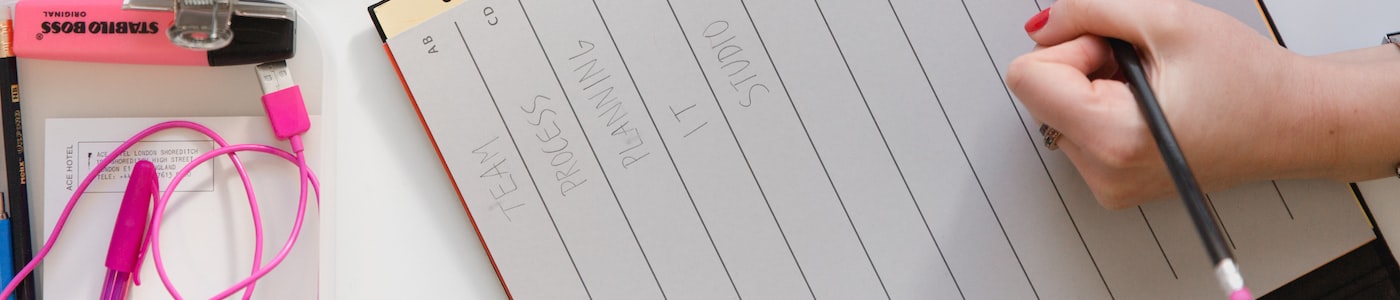 STABILO BOSS
ORIGINAL
ACE HOTEL
ACE HOTEL LONDON SHOREDITCH
SHOREDITCH HIGH STREET
LONDON E1
ENGLAND
TELE:
HB
AB
CD
TEAM
PROCESS
PLANNING
IT
STUDIO